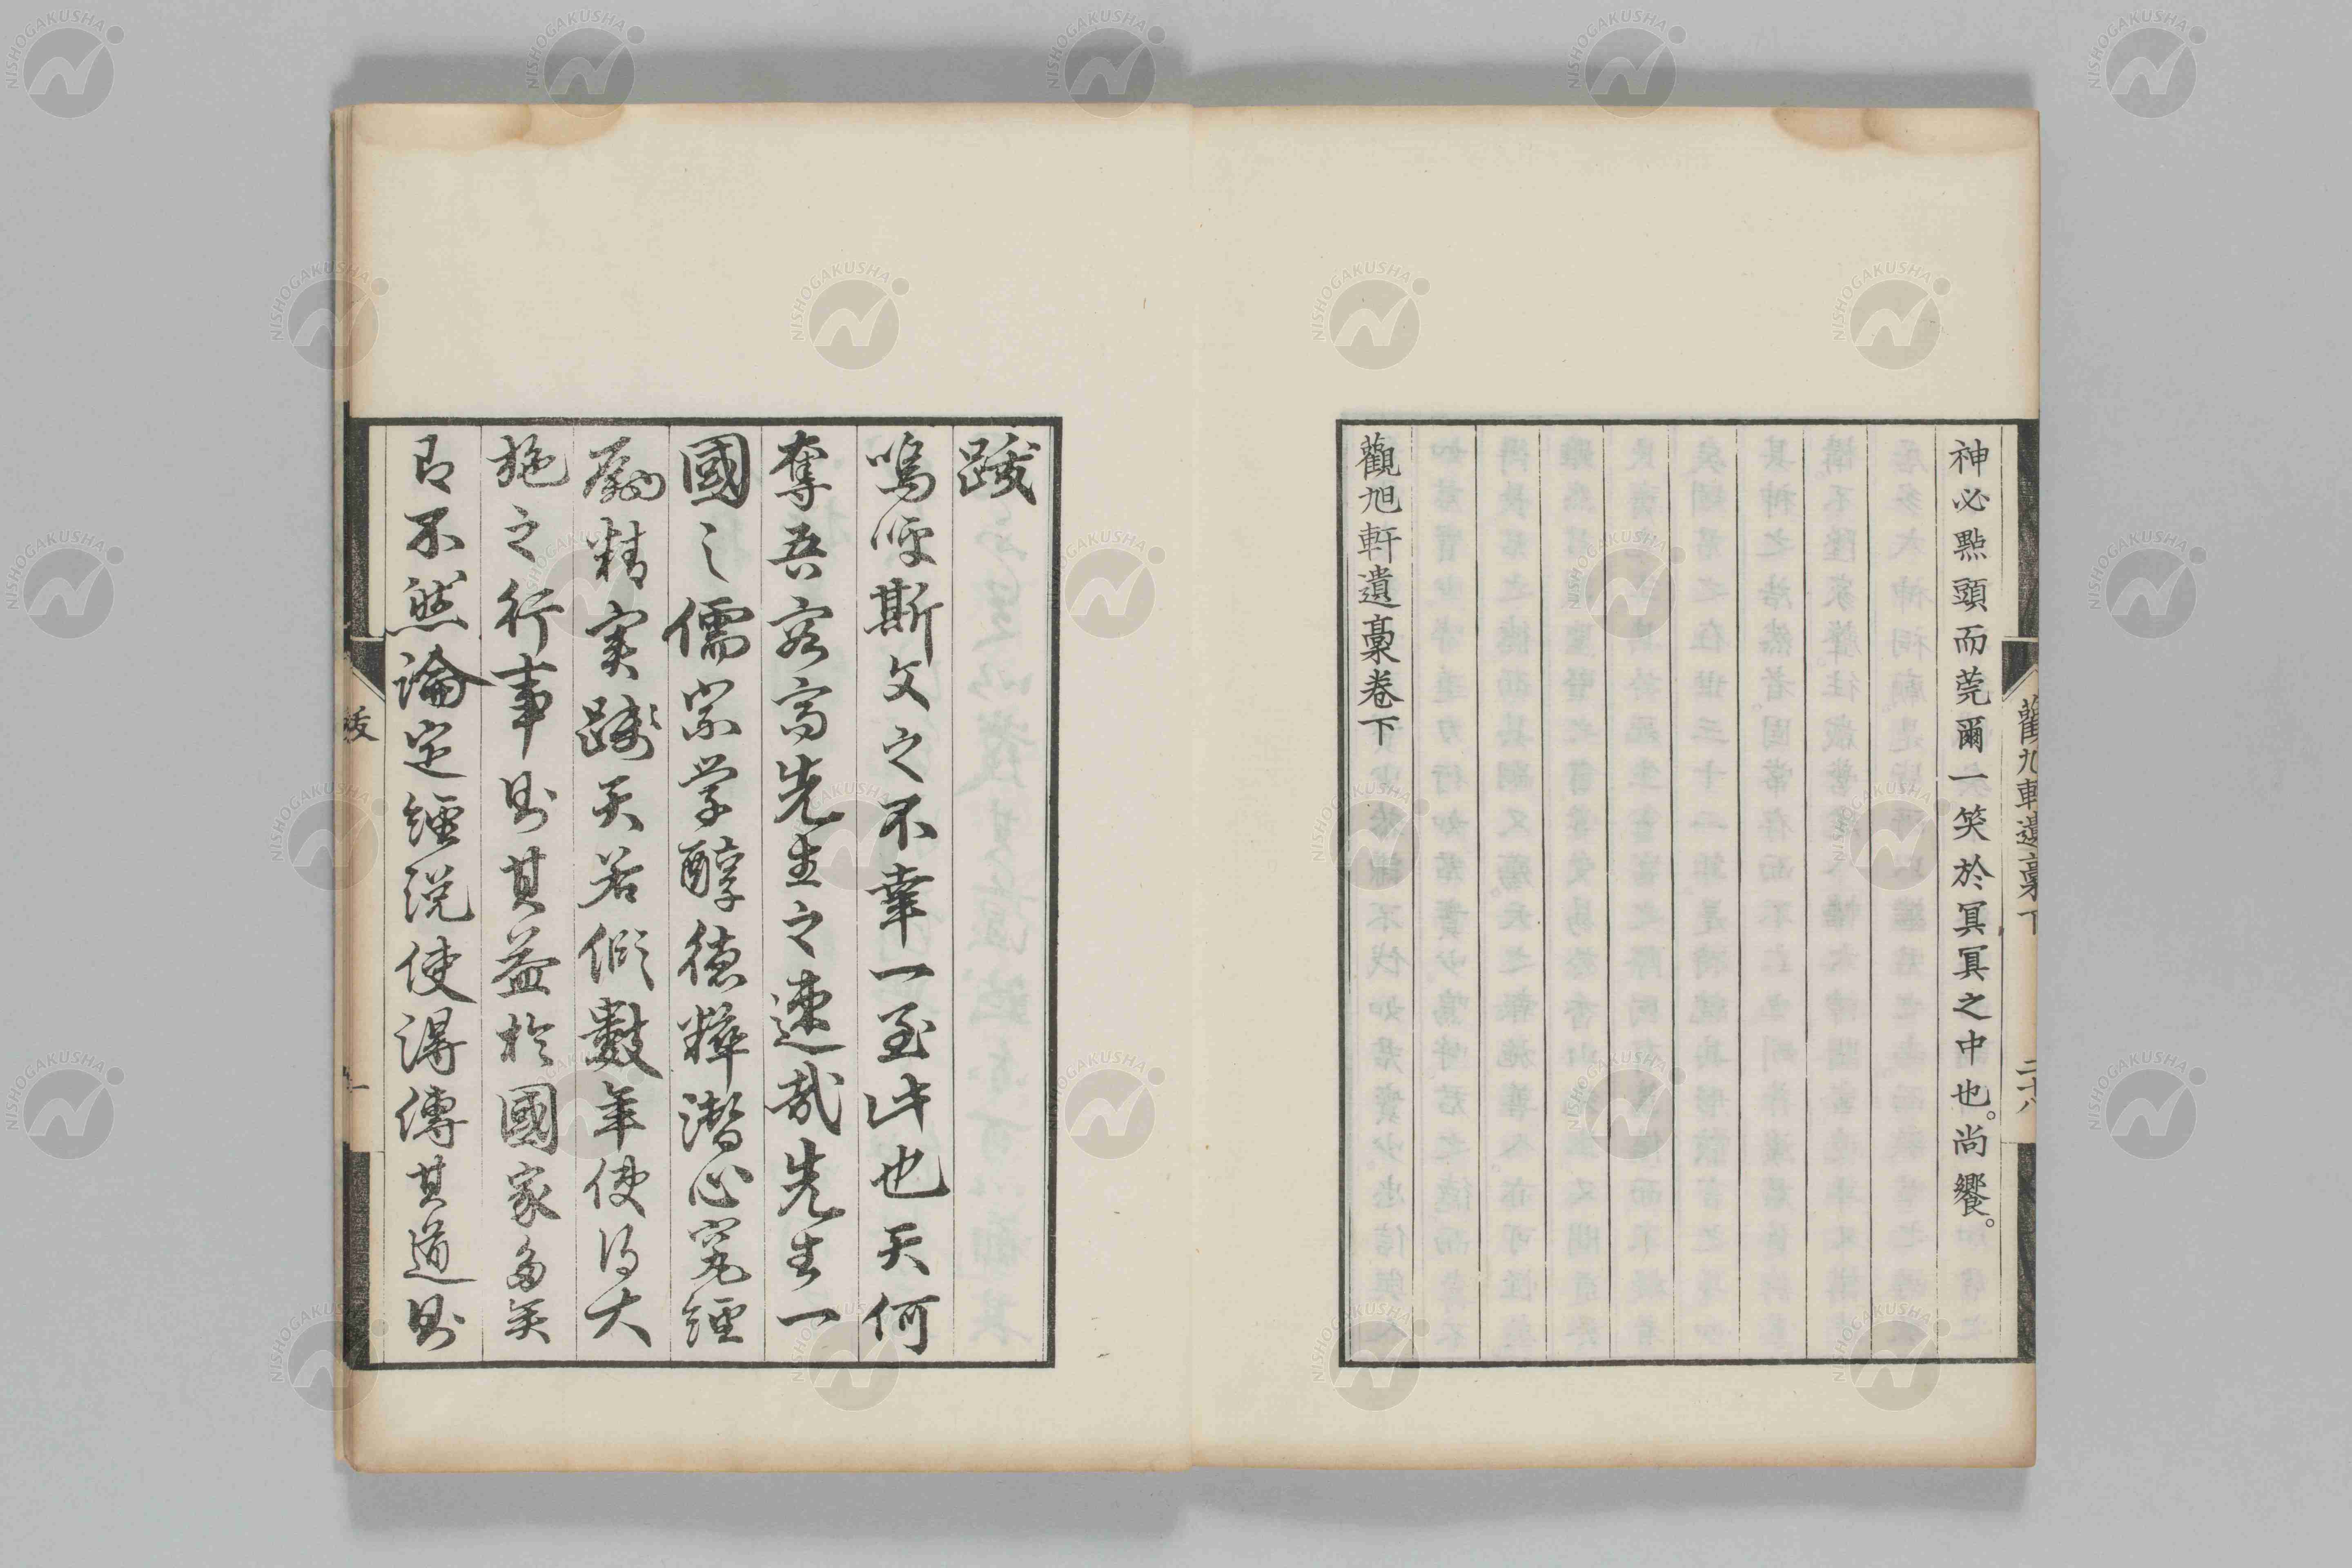 神必點頭而莞爾一笑於冥冥之中也。尚饗。
觀旭軒遺稾卷下
觀旭軒遺稾下
二十八
跋
嗚呼斯文之不幸一至此也天何
奪吾容高先生之速哉先生一
國之儒宗学醇德粹潜心究經
勵精実踐天若假數年使得大
施之行事則其益於國家多矣
即不然論定經説使得傳其道則
跋
一
NISHOGAKUSHA